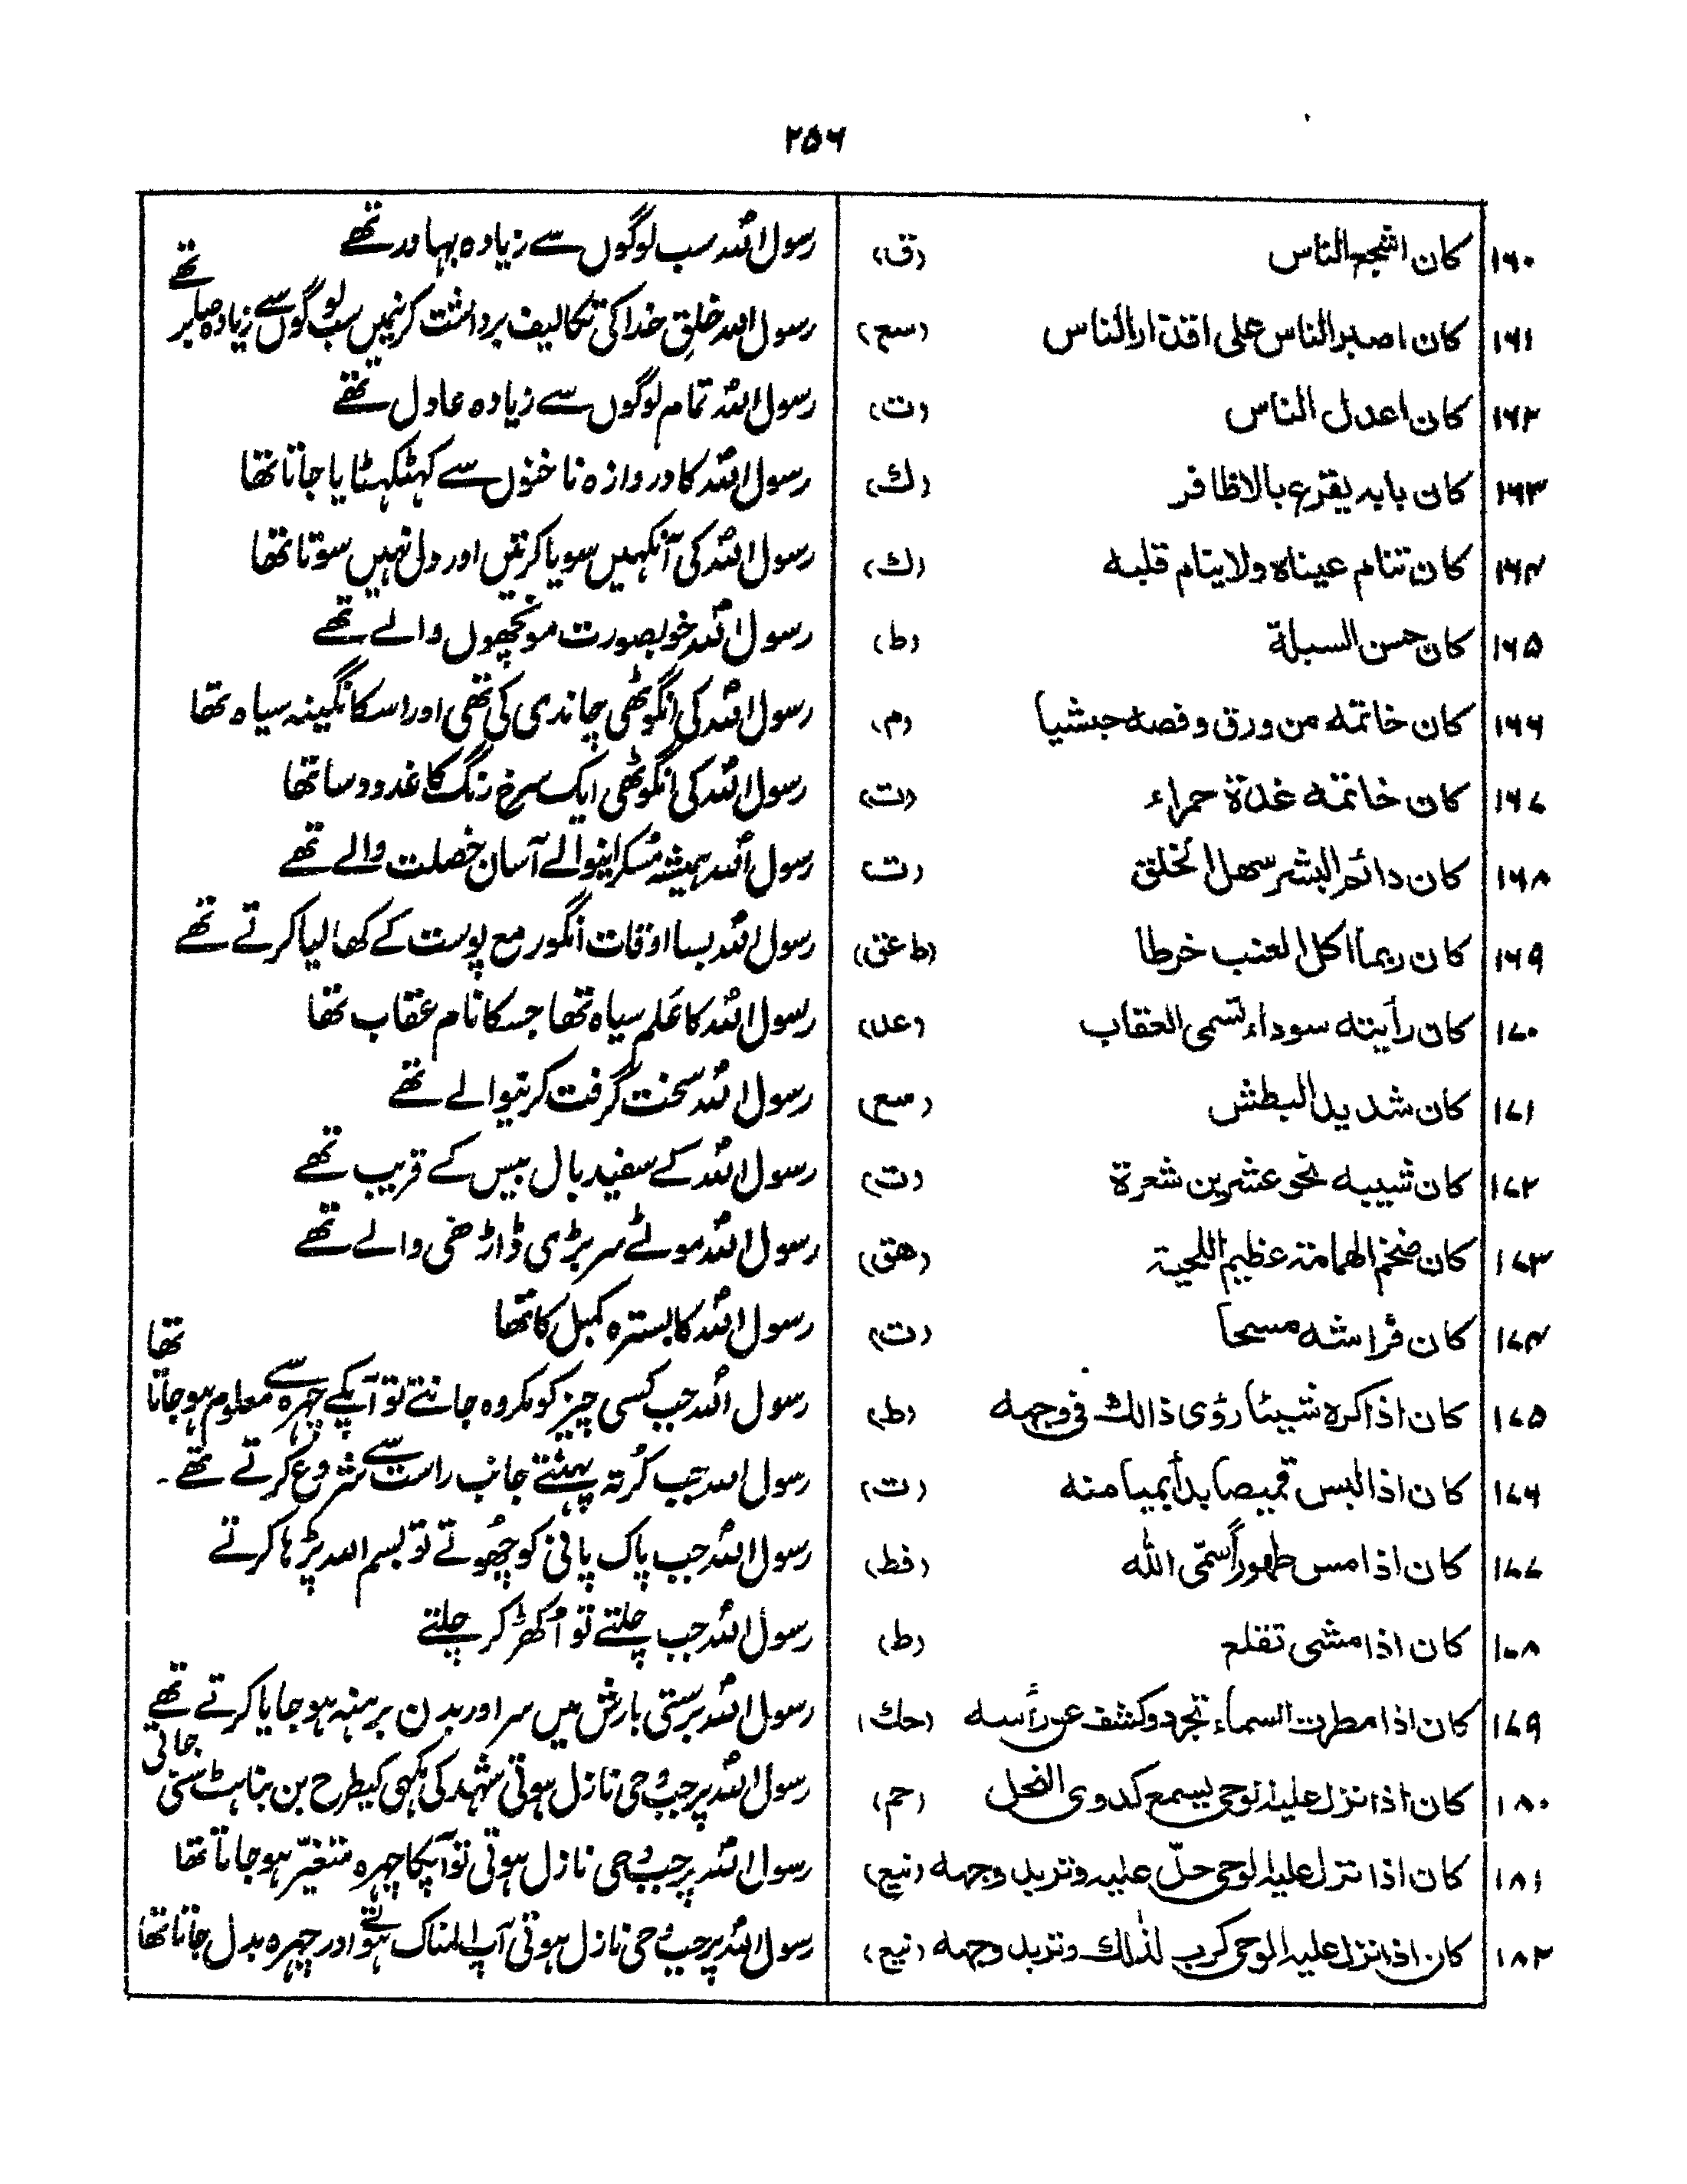 ۲۵۶
۱۶۰ کان اشجع الناس (ق) رسول اللہ سب لوگوں سے زیادہ بہادر تھے
۱۶۱ کان اصبر الناس علی اقذار الناس (سع) رسول اللہ خلقِ خدا کی تکالیف برداشت کرنیمیں سب لوگوں سے زیادہ صابر تھے
۱۶۲ کان اعدل الناس (ت) رسول اللہ تمام لوگوں سے زیادہ عادل تھے
۱۶۳ کان بابہ یقرع بالاظافر (ك) رسول اللہ کا دروازہ ناخنوں سے کہٹکہٹایا جاتا تھا
۱۶۴ کان تنام عیناہ ولا ینام قلبہ (ك) رسول اللہ کی آنکہیں سویا کرتیں اور دل نہیں سوتا تھا
۱۶۵ کان حسن السبلة (ط) رسول اللہ خوبصورت مونچھوں والے تھے
۱۶۶ کان خاتمہ من ورق وفصہ حبشیا (م) رسول اللہ کی انگوٹھی چاندی کی تھی اور اسکا نگینہ سیاہ تھا
۱۶۷ کان خاتمہ غدة حمراء (ت) رسول اللہ کی انگوٹھی ایک سرخ رنگ کا غدود سا تھا
۱۶۸ کان دائم البشر سھل الخلق (ت) رسول اللہ ہمیشہ مُسکرانیوالے آسان خصلت والے تھے
۱۶۹ کان ربما اکل العنب خرطا (ط عق) رسول اللہ بسا اوقات انگور مع پوست کے کھا لیا کرتے تھے
۱۷۰ کان رأیتہ سوداء تسمی العقاب (عد) رسول اللہ کا عَلم سیاہ تھا جسکا نام عقاب تھا
۱۷۱ کان شدید البطش (سع) رسول اللہ سخت گرفت کرنیوالے تھے
۱۷۲ کان شیبہ نحو عشرین شعرة (ت) رسول اللہ کے سفید بال بیس کے قریب تھے
۱۷۳ کان ضخم الھامة عظیم اللحیة (ھق) رسول اللہ موٹے سر بڑی ڈاڑھی والے تھے
۱۷۴ کان فراشہ مسحا (ت) رسول اللہ کا بسترہ کمبل کا تھا
۱۷۵ کان اذا کرہ شیئا رؤی ذالك فی وجہہ (ط) رسول اللہ جب کسی چیز کو مکروہ جانتے تو آپکے چہرہ سے معلوم ہو جاتا تھا
۱۷۶ کان اذا لبس قمیصا بدأ بمیامنہ (ت) رسول اللہ جب کُرتہ پہنتے جانب راست سے شروع کرتے تھے۔
۱۷۷ کان اذا مس طھوراً سمّی اللہ (فط) رسول اللہ جب پاک پانی کو چُھوتے تو بسم اللہ پڑہا کرتے
۱۷۸ کان اذا مشی تقلع (ط) رسول اللہ جب چلتے تو اُکھڑ کر چلتے
۱۷۹ کان اذا مطرت السماء تجرد وکشف عن رأسہ (حك) رسول اللہ برستی بارش میں سر اور بدن برہنہ ہو جایا کرتے تھے
۱۸۰ کان اذا نزل علیہ الوحی یسمع کدوی النحل (حم) رسول اللہ پر جب وحی نازل ہوتی شہد کی مکہی کیطرح بن بناہٹ سنی جاتی
۱۸۱ کان اذا نزل علیہ الوحی حلّ علیہ وتربد وجہہ (نیع) رسول اللہ پر جب وحی نازل ہوتی تو آپکا چہرہ متغیّر ہو جاتا تھا
۱۸۲ کان اذا نزل علیہ الوحی کرب لذٰلك وتربد وجہہ (نیع) رسول اللہ پر جب وحی نازل ہوتی آپ المناک ہوتے اور چہرہ بدل جاتا تھا